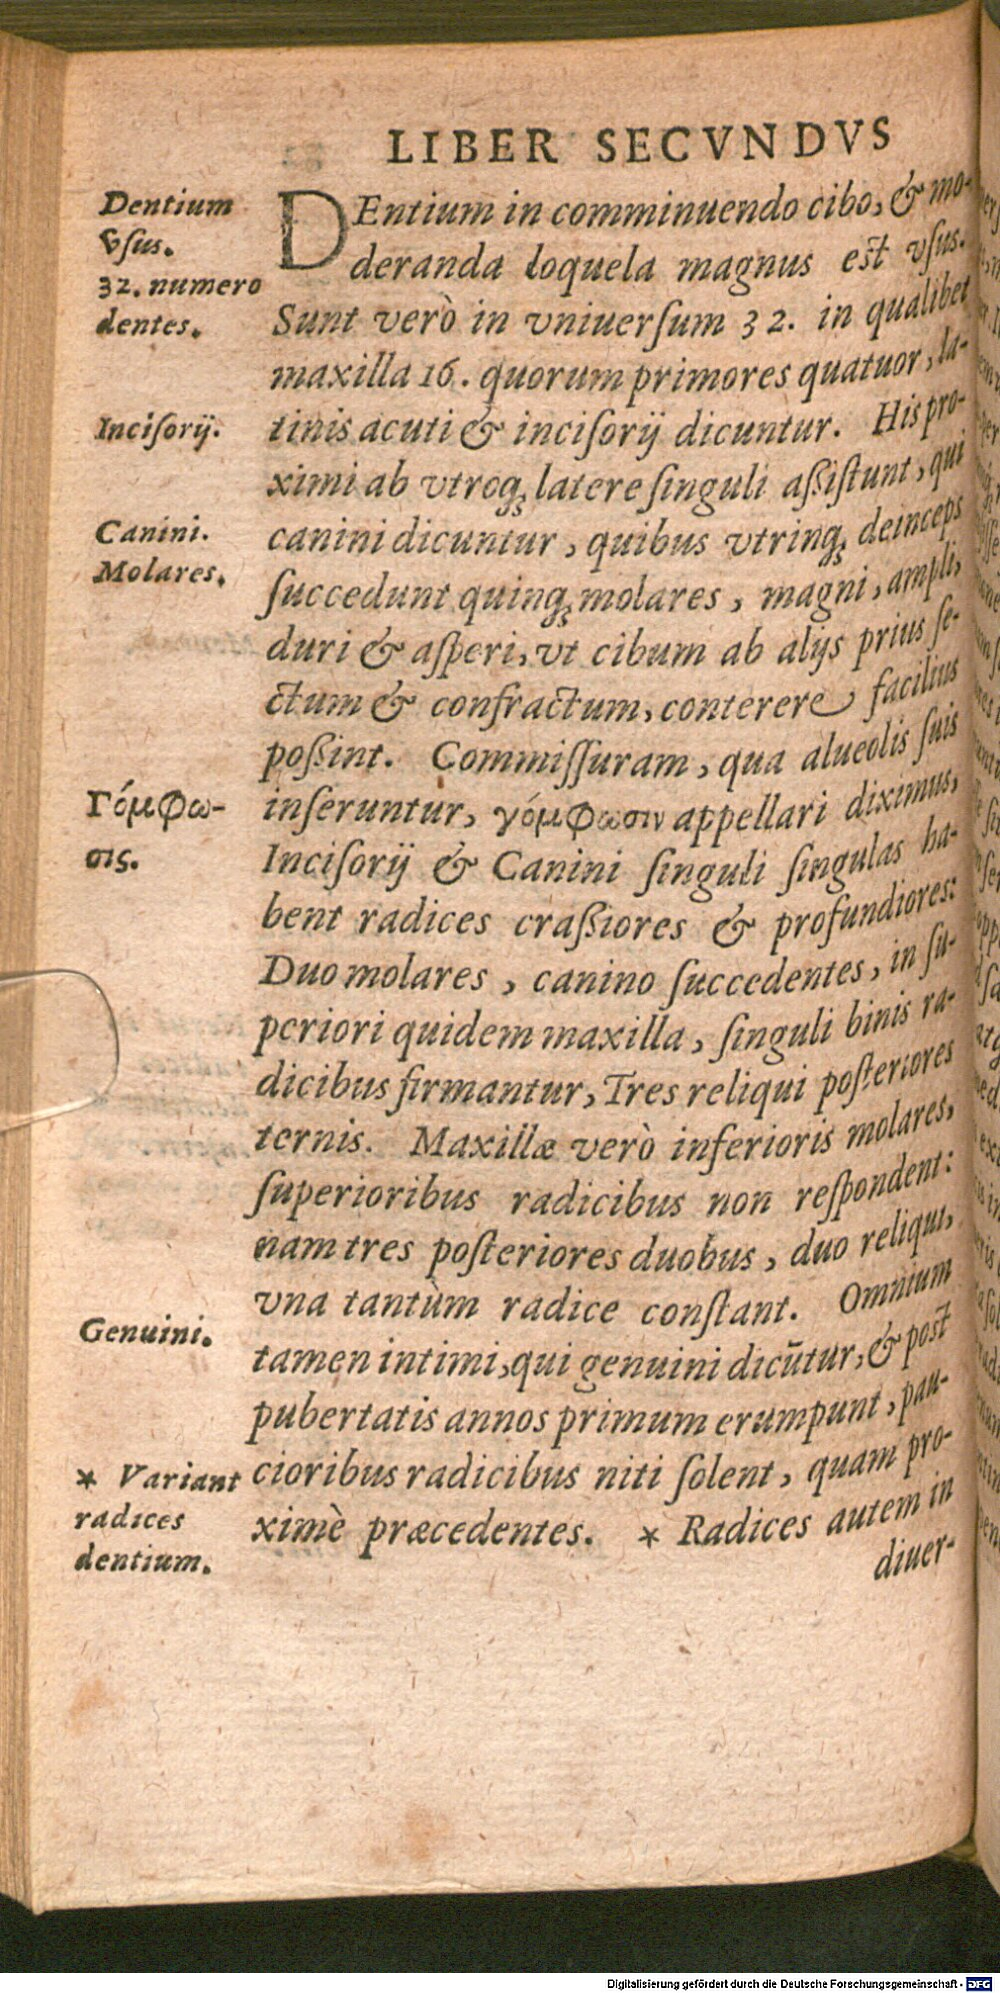 LIBER SECVNDVS
Dentium
vſus.
32. numero
dentes.
Inciſorij.
Canini.
Molares.
Γόμφω-
σις.
Genuini.
* Variant
radices
dentium.
DEntium in comminuendo cibo, & mo-
deranda loquela magnus est vſus.
Sunt verò in vniuerſum 32. in qualibet
maxilla 16. quorum primores quatuor, la-
tinis acuti & inciſorij dicuntur. His pro-
ximi ab vtroq; latere ſinguli aßiſtunt, qui
canini dicuntur, quibus vtrinq; deinceps
ſuccedunt quinq; molares, magni, ampli,
duri & aſperi, vt cibum ab alijs prius ſe-
ctum & confractum, conterere facilius
poßint. Commiſſuram, qua alueolis ſuis
inſeruntur, γόμφωσιν appellari diximus,
Inciſorij & Canini ſinguli ſingulas ha-
bent radices craßiores & profundiores:
Duo molares, canino ſuccedentes, in ſu-
periori quidem maxilla, ſinguli binis ra-
dicibus firmantur, Tres reliqui poſteriores
ternis. Maxillæ verò inferioris molares,
ſuperioribus radicibus non reſpondent:
nam tres poſteriores duobus, duo reliqui,
vna tantùm radice conſtant. Omnium
tamen intimi, qui genuini dicūtur, & post
pubertatis annos primum erumpunt, pau-
cioribus radicibus niti ſolent, quam pro-
ximè præcedentes. * Radices autem in
diuer-
Digitalisierung gefördert durch die Deutsche Forschungsgemeinschaft - DFG